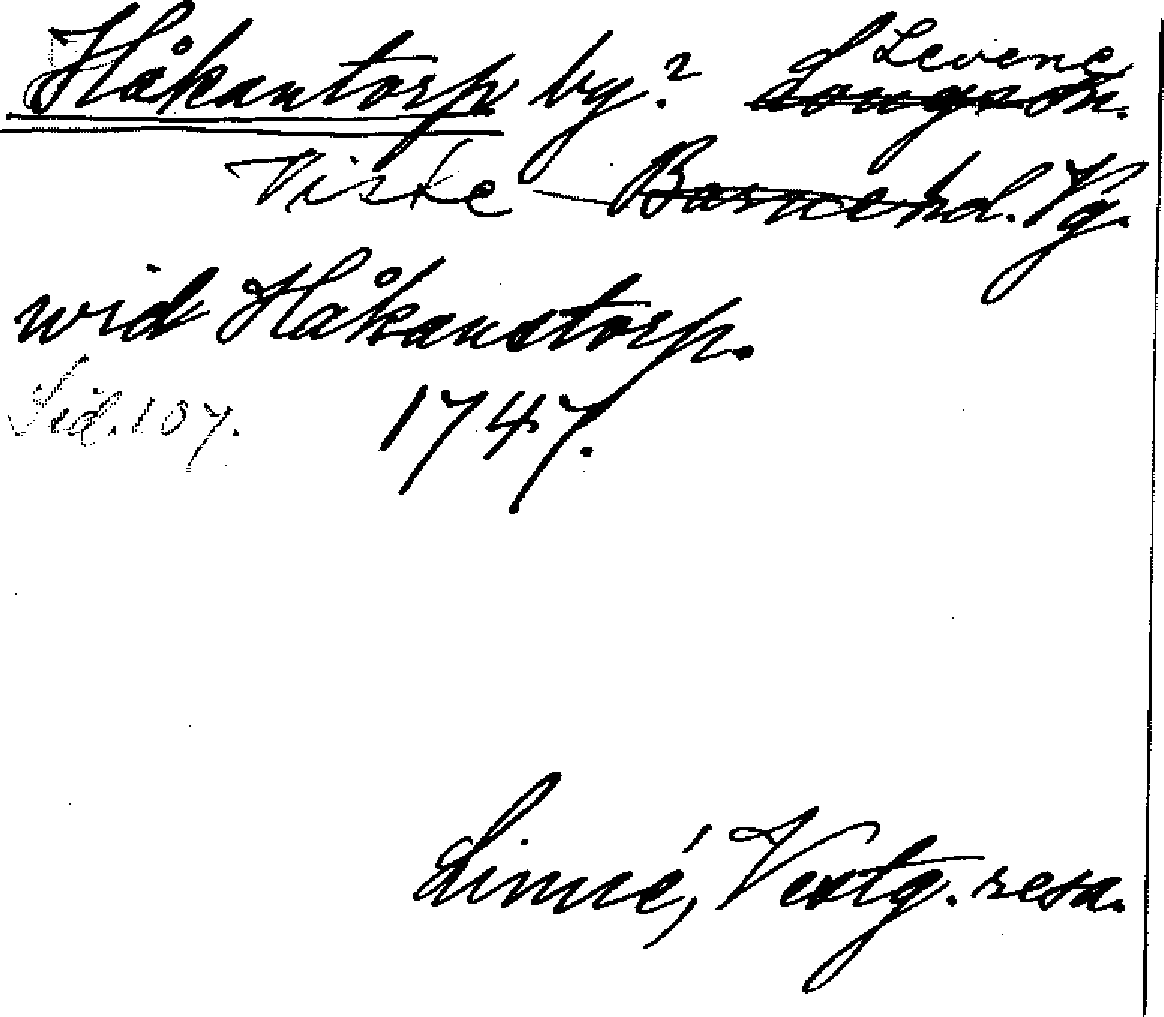 Håkantorp by? Levene
Longs sn.
Viste Barne hd. Vg.
wid Håkanstorp.
Sid. 107. 1747.
Linné, Vestg. resa.